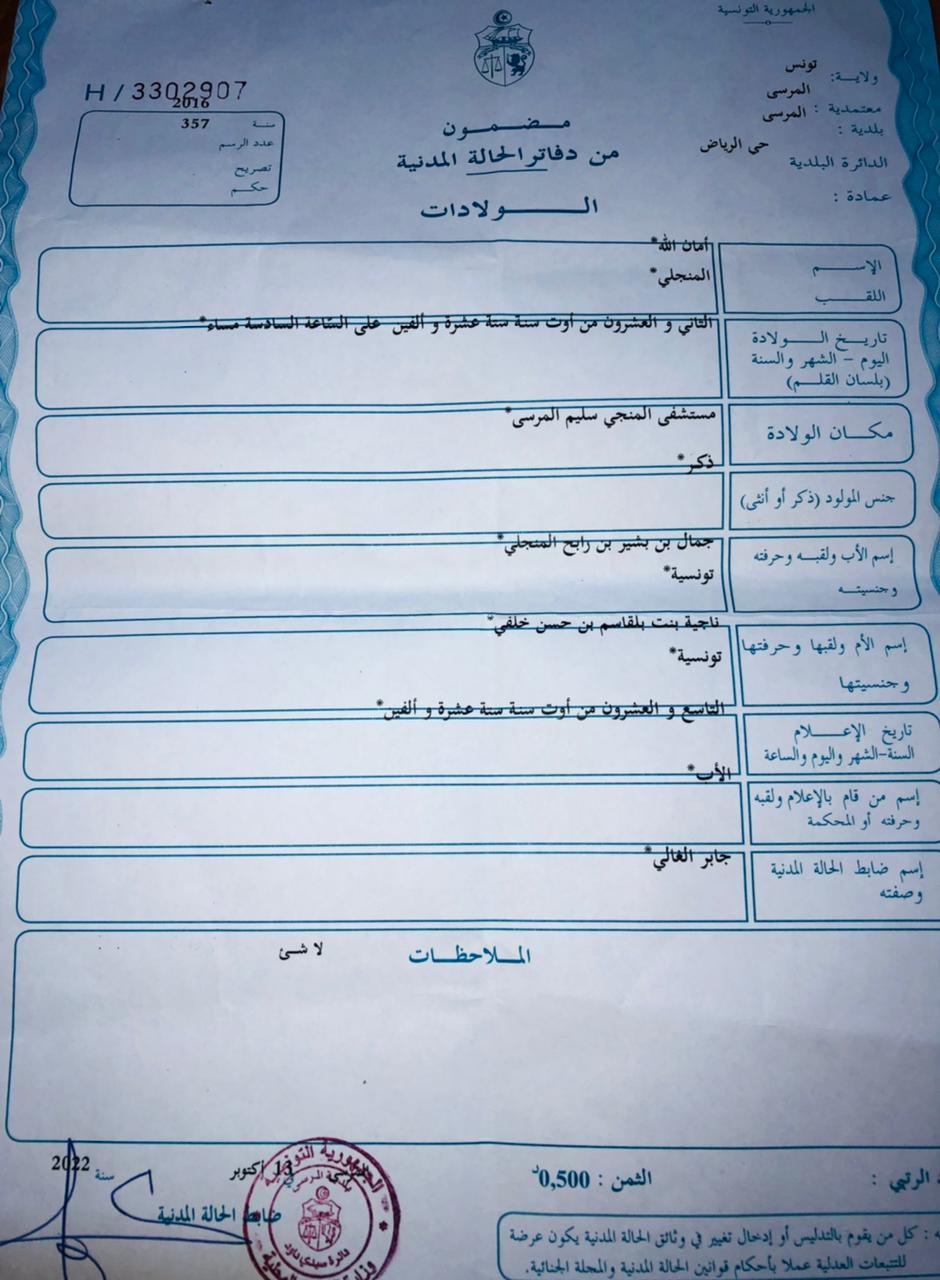 الجمهورية التونسية
ولاية : تونس
معتمدية : المرسى
بلدية : المرسى
الدائرة البلدية حي الرياض
عمادة :
H / 3302907
سنة 2016
عدد الرسم 357
تصريح
حكم
مضمون
من دفاتر الحالة المدنية
الولادات
الإسم أمان الله*
اللقب المنجلي*
تاريخ الولادة
اليوم - الشهر والسنة
(بلسان القلم)
الثاني و العشرون من أوت سنة ستة عشرة و ألفين على الساعة السادسة مساء*
مكان الولادة
مستشفى المنجي سليم المرسى*
جنس المولود (ذكر أو أنثى)
ذكر*
إسم الأب ولقبه وحرفته
وجنسيته
جمال بن بشير بن رابح المنجلي*
تونسية*
إسم الأم ولقبها وحرفتها
وجنسيتها
ناجية بنت بلقاسم بن حسن خلفي*
تونسية*
تاريخ الإعلام
السنة-الشهر واليوم والساعة
التاسع و العشرون من أوت سنة ستة عشرة و ألفين*
إسم من قام بالإعلام ولقبه
وحرفته أو المحكمة
الأب*
إسم ضابط الحالة المدنية
وصفته
جابر الغالي*
الملاحظات
لا شئ
الرتبي :
الثمن : 0,500د
13 أكتوبر سنة 2022
ضابط الحالة المدنية
الجمهورية التونسية
بلدية المرسى
دائرة سيدي داود
: كل من يقوم بالتدليس أو إدخال تغيير في وثائق الحالة المدنية يكون عرضة
للتتبعات العدلية عملا بأحكام قوانين الحالة المدنية والمجلة الجنائية.